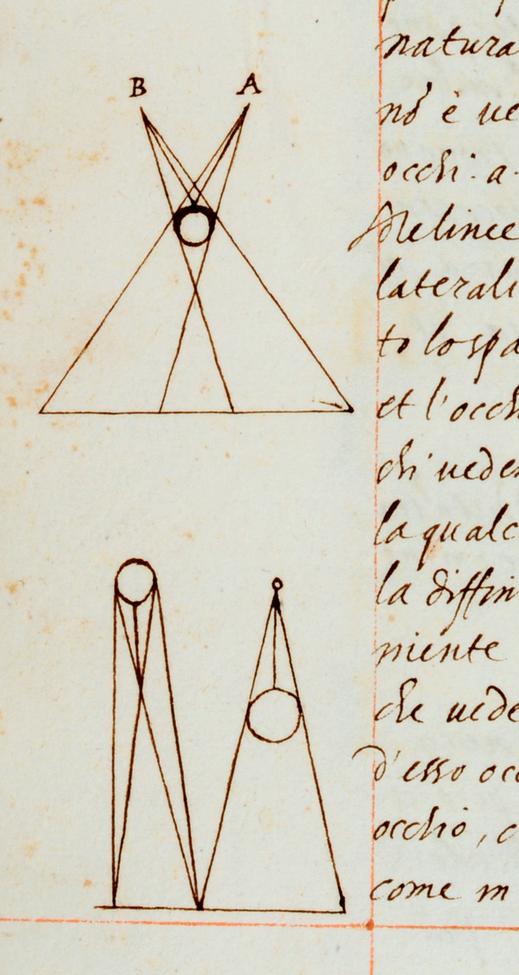 B A
natura
nõ è ue
occhi: a
Le linee
laterali
to lo spa
et l'occh
chi uede
la qualc
la diffin
niente
che uede
d'esso occ
occhio, c
come in